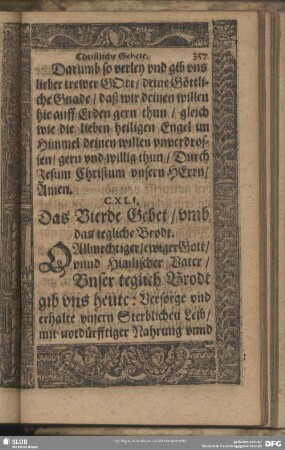 Christliche Gebete. 357
Darumb so verley vnd gib vns
lieber trewer GOtt / deine Göttli-
che Gnade / daß wir deinen willen
hie auff Erden gern thun / gleich
wie die lieben heiligen Engel im
Himmel deinen willen vnverdros-
sen / gern vnd willig thun / Durch
Jesum Christum vnsern HErrn /
Amen.
CXLI.
Das Vierde Gebet / vmb
das tegliche Brodt.
O Allmechtiger / ewiger Gott /
vnnd Himlischer Vater /
Vnser teglich Brodt
gib vns heute: Versorge vnd
erhalte vnsern Sterblichen Leib /
mit notdürfftiger Nahrung vnnd
SLUB
DFG